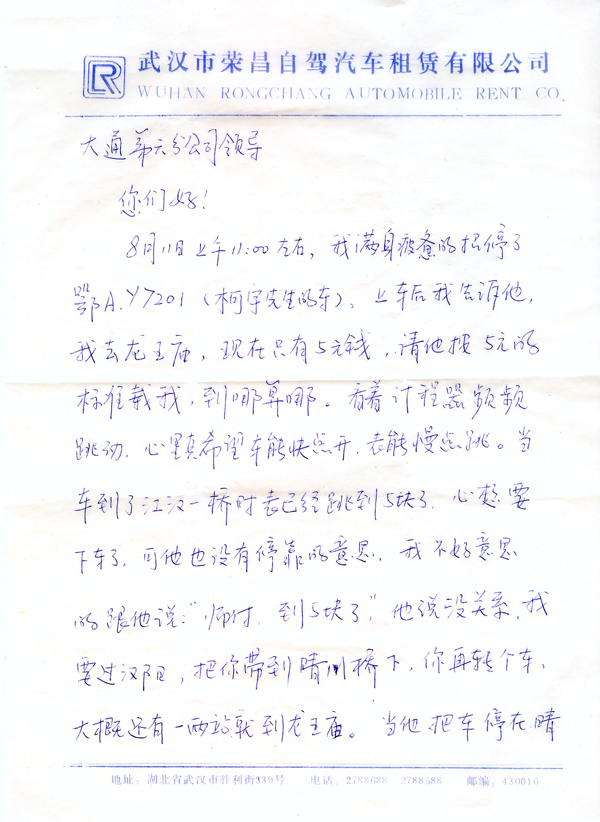 武汉市荣昌自驾汽车租赁有限公司
WUHAN RONGCHANG AUTOMOBILE RENT CO.
大通第六分公司领导
您们好！
8月11日上午11:00左右，我满身疲惫的招停了
鄂A.Y7201（柯宇先生的车）。上车后我告诉他，
我去龙王庙，现在只有5元钱，请他按5元的
标准载我，到哪算哪。看着计程器频频
跳动，心里真希望车能快点开，表能慢点跳。当
车到了江汉一桥时表已经跳到5块了，心想要
下车了，可他也没有停靠的意思，我不好意思
的跟他说：“师付，到5块了，”他说没关系，我
要过汉阳，把你带到晴川桥下，你再转个车，
大概还有一两站就到龙王庙。当他把车停在晴
地址：湖北省武汉市胜利街339号 电话：2788688 2788588 邮编：430010